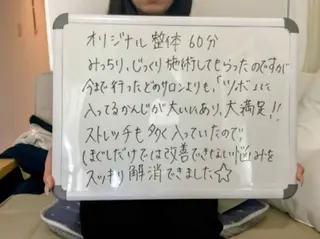 オリジナル整体 60分
みっちり、じっくり施術してもらったのですが
今まで行ったどのサロンよりも、「ツボ」に
入ってるかんじが大いにあり、大満足!!
ストレッチも多く入っていたので、
ほぐしだけでは改善できない悩みを
スッキリ解消できました☆